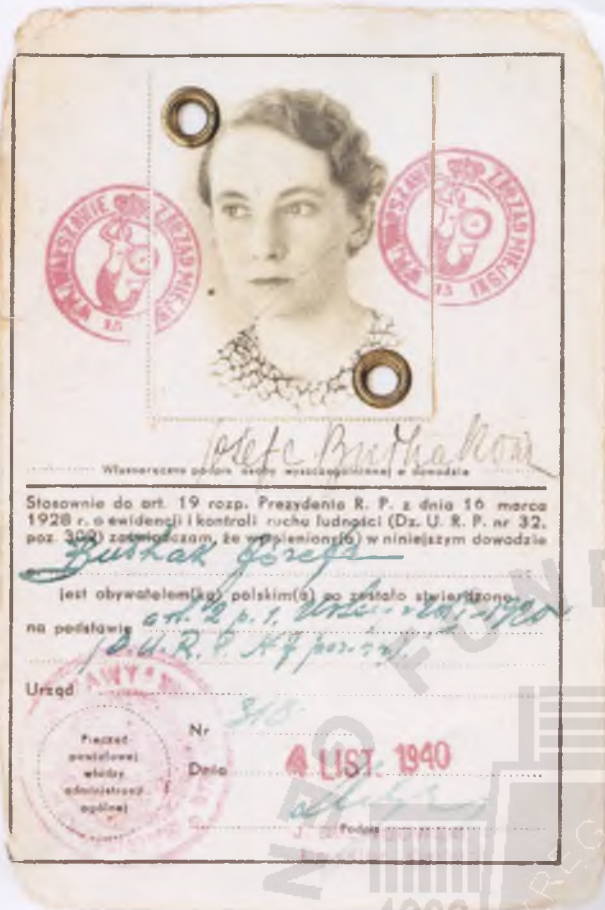 W M. WARSZAWIE ZARZĄD MIEJSKI
15
W M. WARSZAWIE ZARZĄD MIEJSKI
15
Własnoręczny podpis osoby wyszczególnionej w dowodzie
Stosownie do art. 19 rozp. Prezydenta R. P. z dnia 16 marca
1928 r. o ewidencji i kontroli ruchu ludności (Dz. U. R. P. nr 32,
poz. 309) zaświadczam, że wymieniony(a) w niniejszym dowodzie
jest obywatelem(ką) polskim(ą) co zostało stwierdzone
na podstawie art. 2 p. 1. 1920
Urząd
Pieczęć
powiatowej
władzy
administracji
ogólnej
Nr 318
Dnia 4 LIST. 1940
Podpis